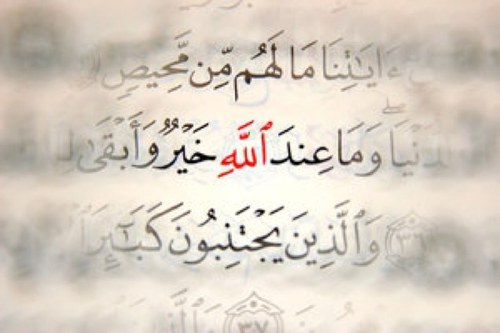 ءَايَٰتِنَا مَا لَهُم مِّن مَّحِيصٍ
ٱلدُّنْيَا ۖ وَمَا عِندَ ٱللَّهِ خَيْرٌ وَأَبْقَىٰ لِ
وَٱلَّذِينَ يَجْتَنِبُونَ كَبَٰٓئِرَ ٱ
٣٧ وَٱلَّذِ